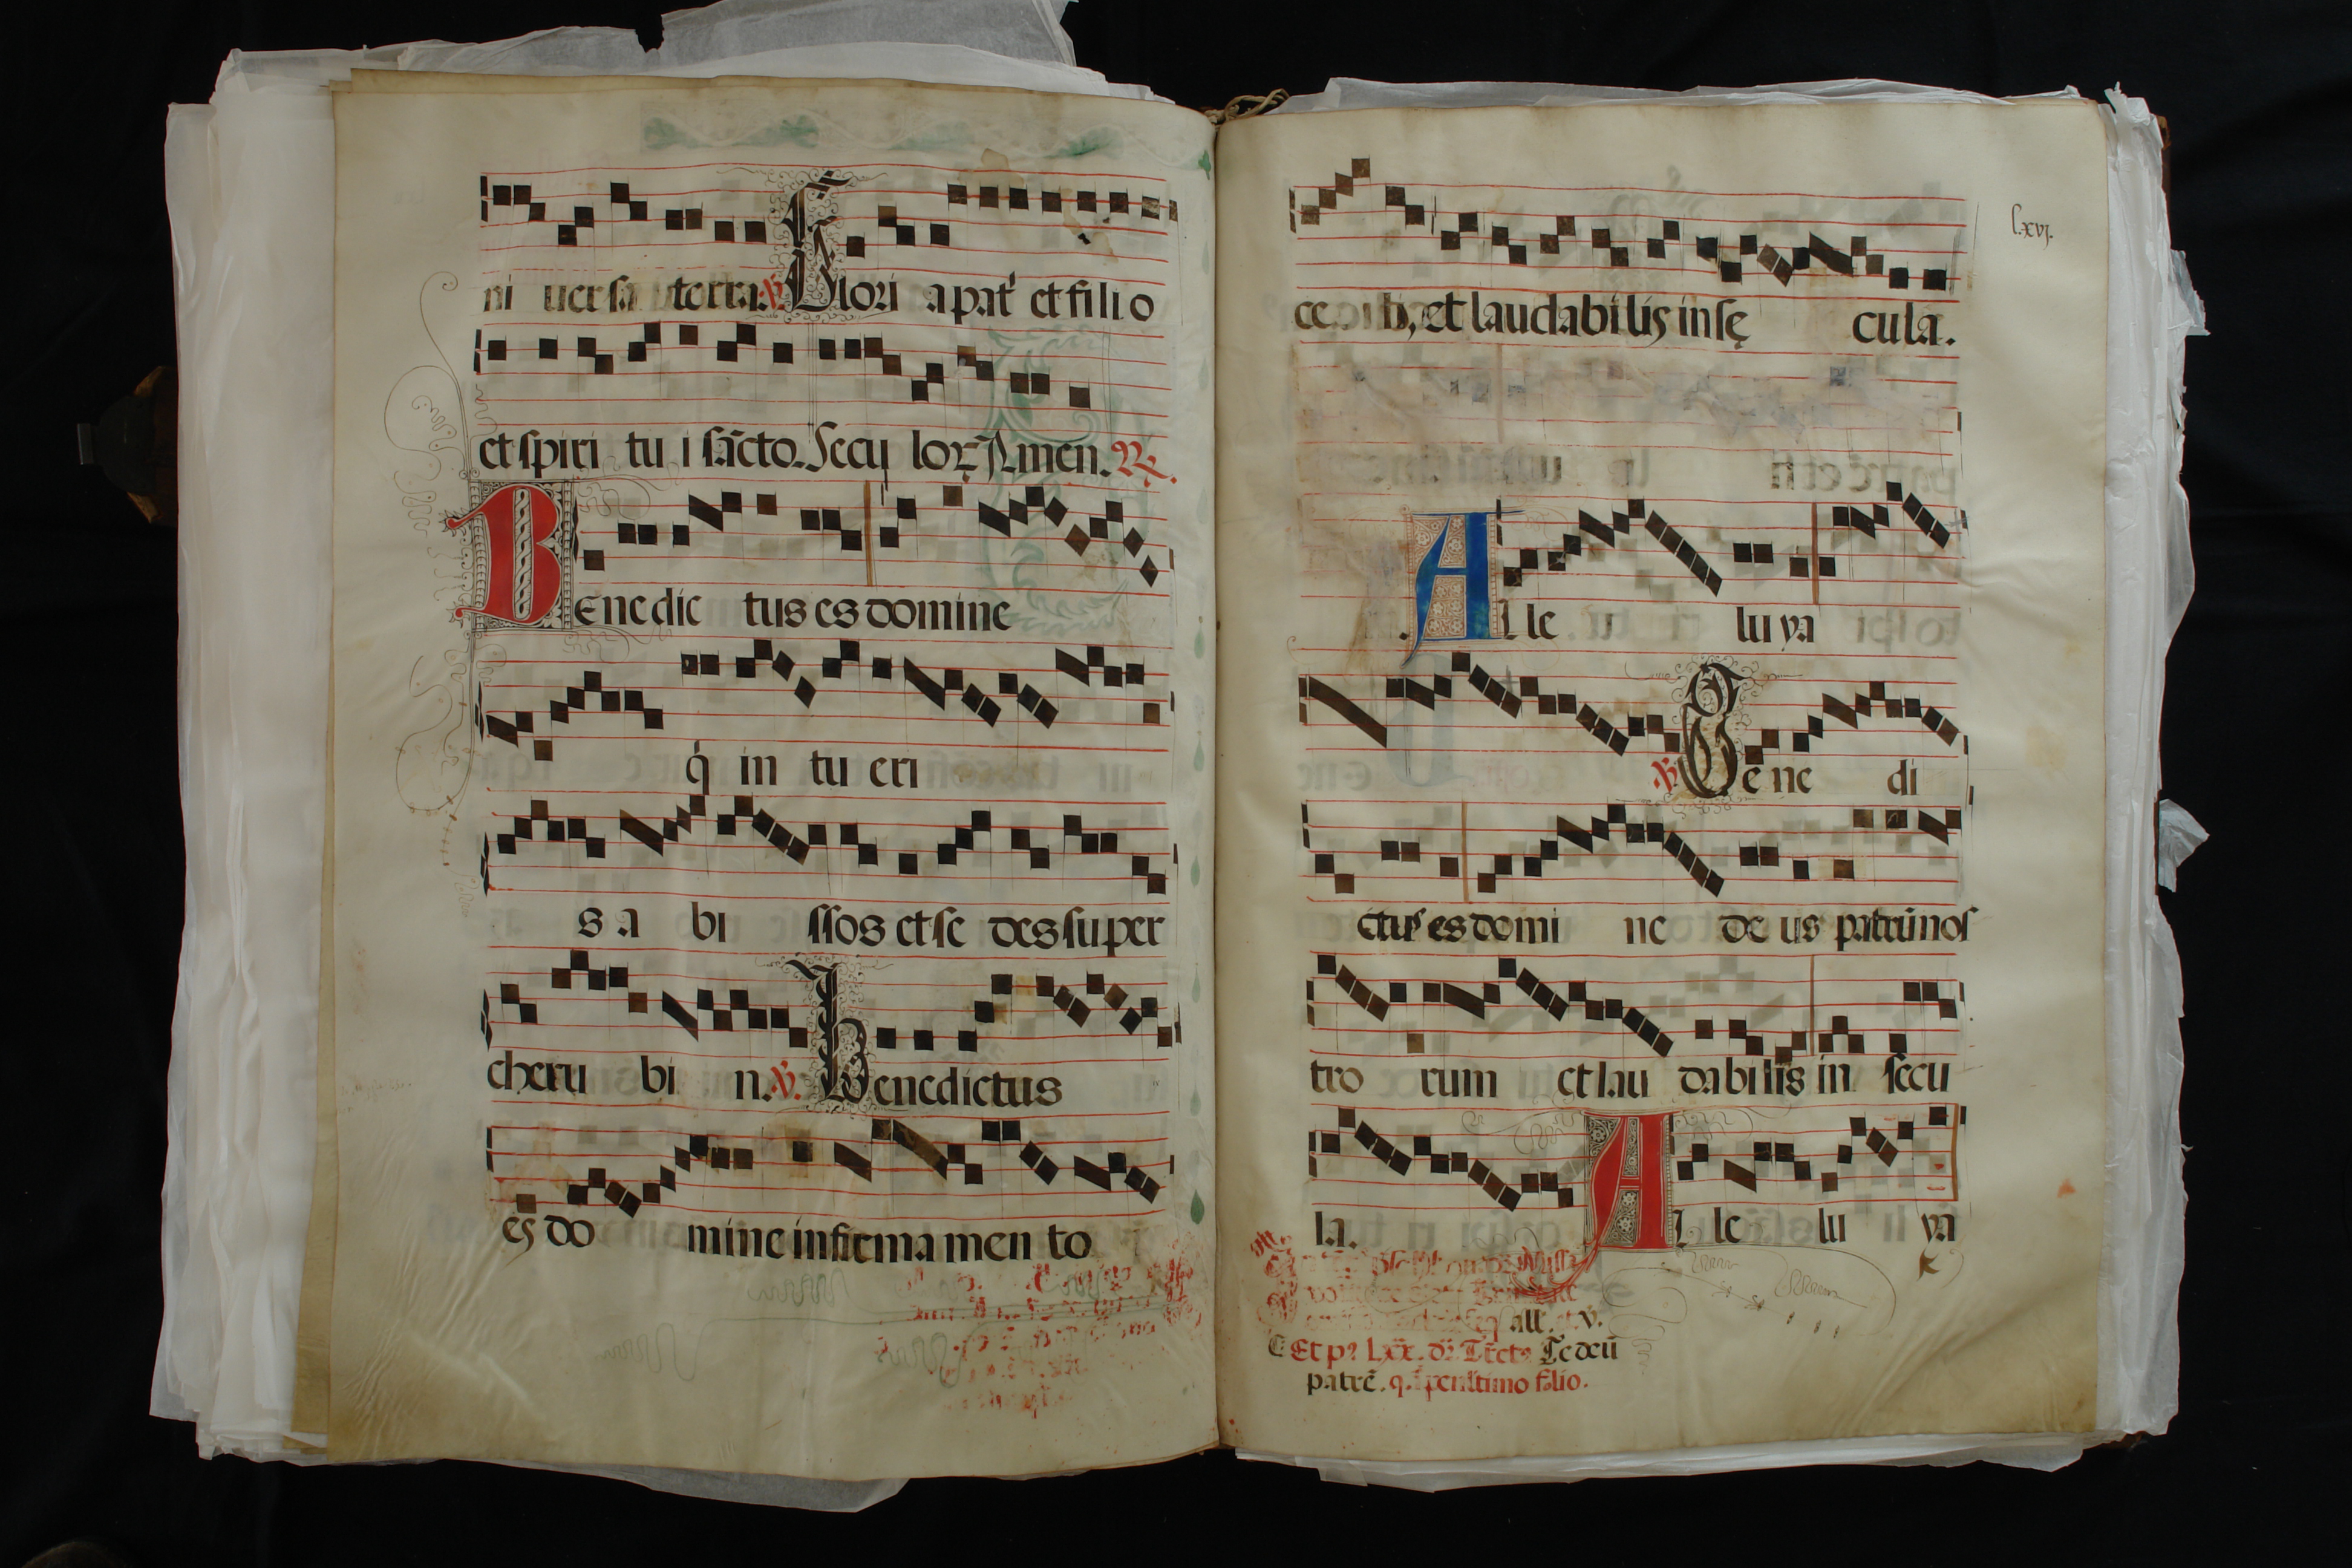 ni uersa terra. ℣. Glori a pat̃ et filio
et spiri tu i sãcto. Secu loꝝ Amen. ℟.
Benedic tus es domine
q̇ in tu eri
s a bi ssos et se des super
cheru bi n. ℣. Benedictus
es do mine in firma men to
l.xvj.
ce et laudabilis in sę cula.
Alle lu ya
℣. Bene di
ctus es domi ne de us patrũ nos
tro rum et lau dabilis in secu
la. Alle lu ya
all. et ℣.
Et pꝰ lxx. Te deũ
patrẽ. q. ĩ penultimo folio.